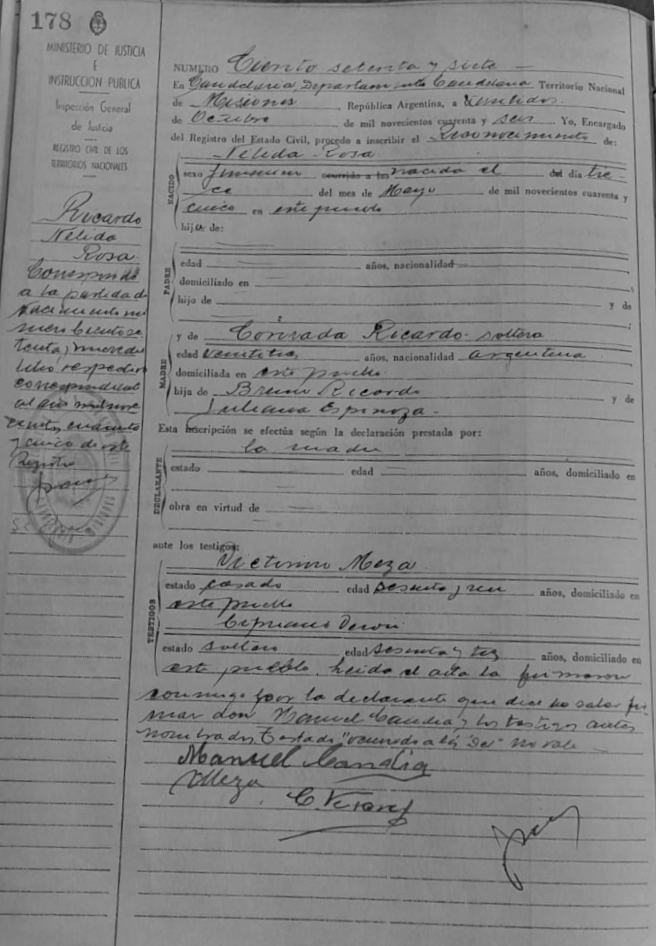 178
MINISTERIO DE JUSTICIA
E
INSTRUCCION PUBLICA
Inspección General
de Justicia
REGISTRO CIVIL DE LOS
TERRITORIOS NACIONALES
Ricardo
Nelida
Rosa
Corresponde
a la partida de
nacimiento nu
mero Ciento se
tenta y nueve del
libro respectivo
correspondiente
al año mil nove
cientos cuarenta
y cinco de este
Registro
NUMERO Ciento setenta y siete
En Candelaria, Departamento Candelaria Territorio Nacional
de Misiones República Argentina, a Veintidos
de Octubre de mil novecientos cuarenta y seis Yo, Encargado
del Registro del Estado Civil, procedo a inscribir el Reconocimiento de:
Nelida Rosa
NACIDO
sexo femenino ocurrido a las nacida el del día tre
ce del mes de Mayo de mil novecientos cuarenta y
cinco en este pueblo
hija de:
PADRE
edad años, nacionalidad
domiciliado en
hijo de y de
MADRE
y de Ricardo soltera
edad veintitres años, nacionalidad argentina
domiciliada en este pueblo
hija de Bruno Ricardo y de
Juliana Espinoza
Esta inscripción se efectúa según la declaración prestada por:
la madre
DECLARANTE
estado edad años, domiciliado en
obra en virtud de
ante los testigos:
TESTIGOS
Victorino Meza
estado casado edad sesenta y años, domiciliado en
este pueblo
Cipriano
estado soltero edad sesenta y tres años, domiciliado en
este pueblo. Leida el acta la firmaron
conmigo por la declarante que dice no saber fir
mar don Manuel Candia y los testigos antes
nombrados. Testado "ocurrido a las" "del" no vale
Manuel Candia
Meza